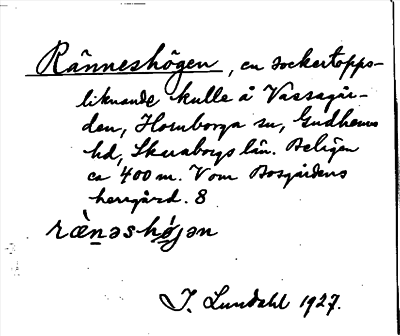 Ränneshögen, en sockertopps-
liknande kulle å Vässagår-
den, Hornborga sn, Gudhems
hd, Skaraborgs län. Belägen
ca 400 m. V om Bosgårdens
herrgård. 8
ræ̀nəshǿ̜jən
J. Lundahl 1927.